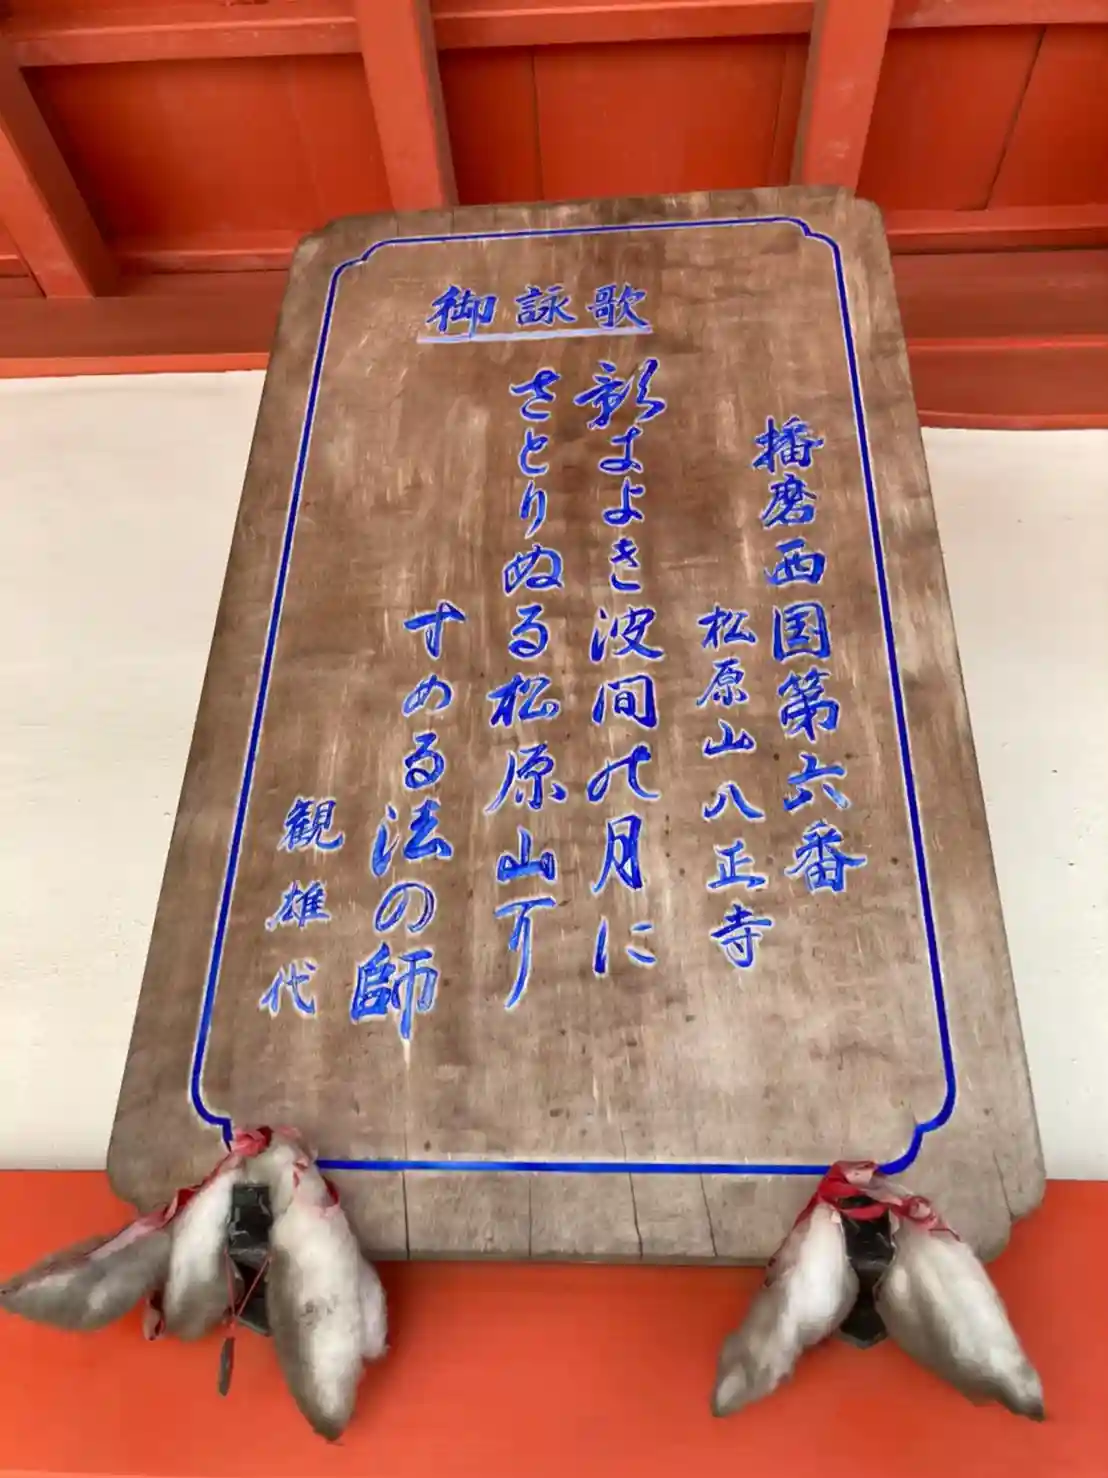 御詠歌
播磨西国第六番
松原山八正寺
影きよき波間の月に
さとりぬる松原山尓
すめる法の師
観雄代